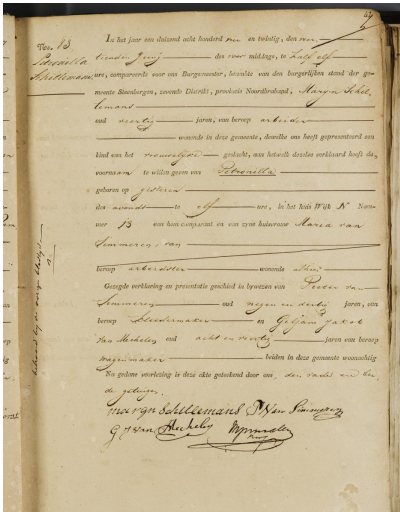 No 13
Petronella
Schillemans
In het jaar een duizend acht honderd een en twintig, den
Junij des voor middags, te half elf
ure, compareerde voor ons Burgemeester, bekleed van den burgerlijken stand der ge-
meente Steenbergen, zevende Distrikt, provincie Noordbraband, Maryn Schil
lemans
oud veertig jaren, van beroep arbeider
woonende in deze gemeente, dewelke ons heeft gepresenteerd een
kind van het vrouwelyke geslacht, aan hetwelk dezelve verklaard heeft de
voornaam te willen geven van Petronella
geboren op gisteren
des avonds te elf ure, in het huis Wijk N Num-
mer 13 van hem comparant en van zyne huisvrouw Maria van
Simmeren, van
beroep arbeidster woonende thuis
Gezegde verklaring en presentatie geschied in bywezen van Pieter van
Simmeren oud negen en dertig jaren, van
beroep Kleedermaker en Geljam Jakob
van Mechelen oud acht en veertig jaren van beroep
wagenmaker beiden in deze gemeente woonachtig
Na gedane voorlezing is deze akte geteekend door ons, den vader en bei
de getuigen
maryn schillemans P Van Simmeren
G J van Mechelen